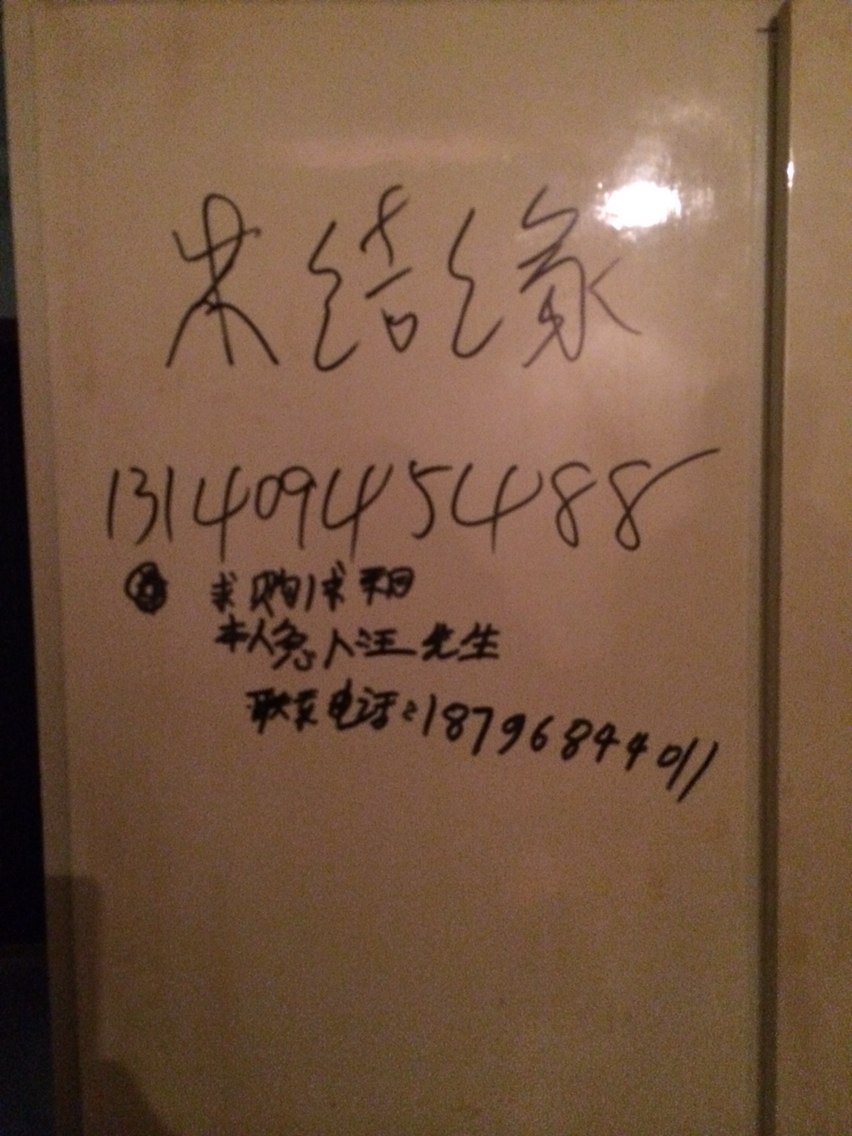 未结缘
13140945488
求购/求租
本人急 人汪先生
联系电话:18796844011